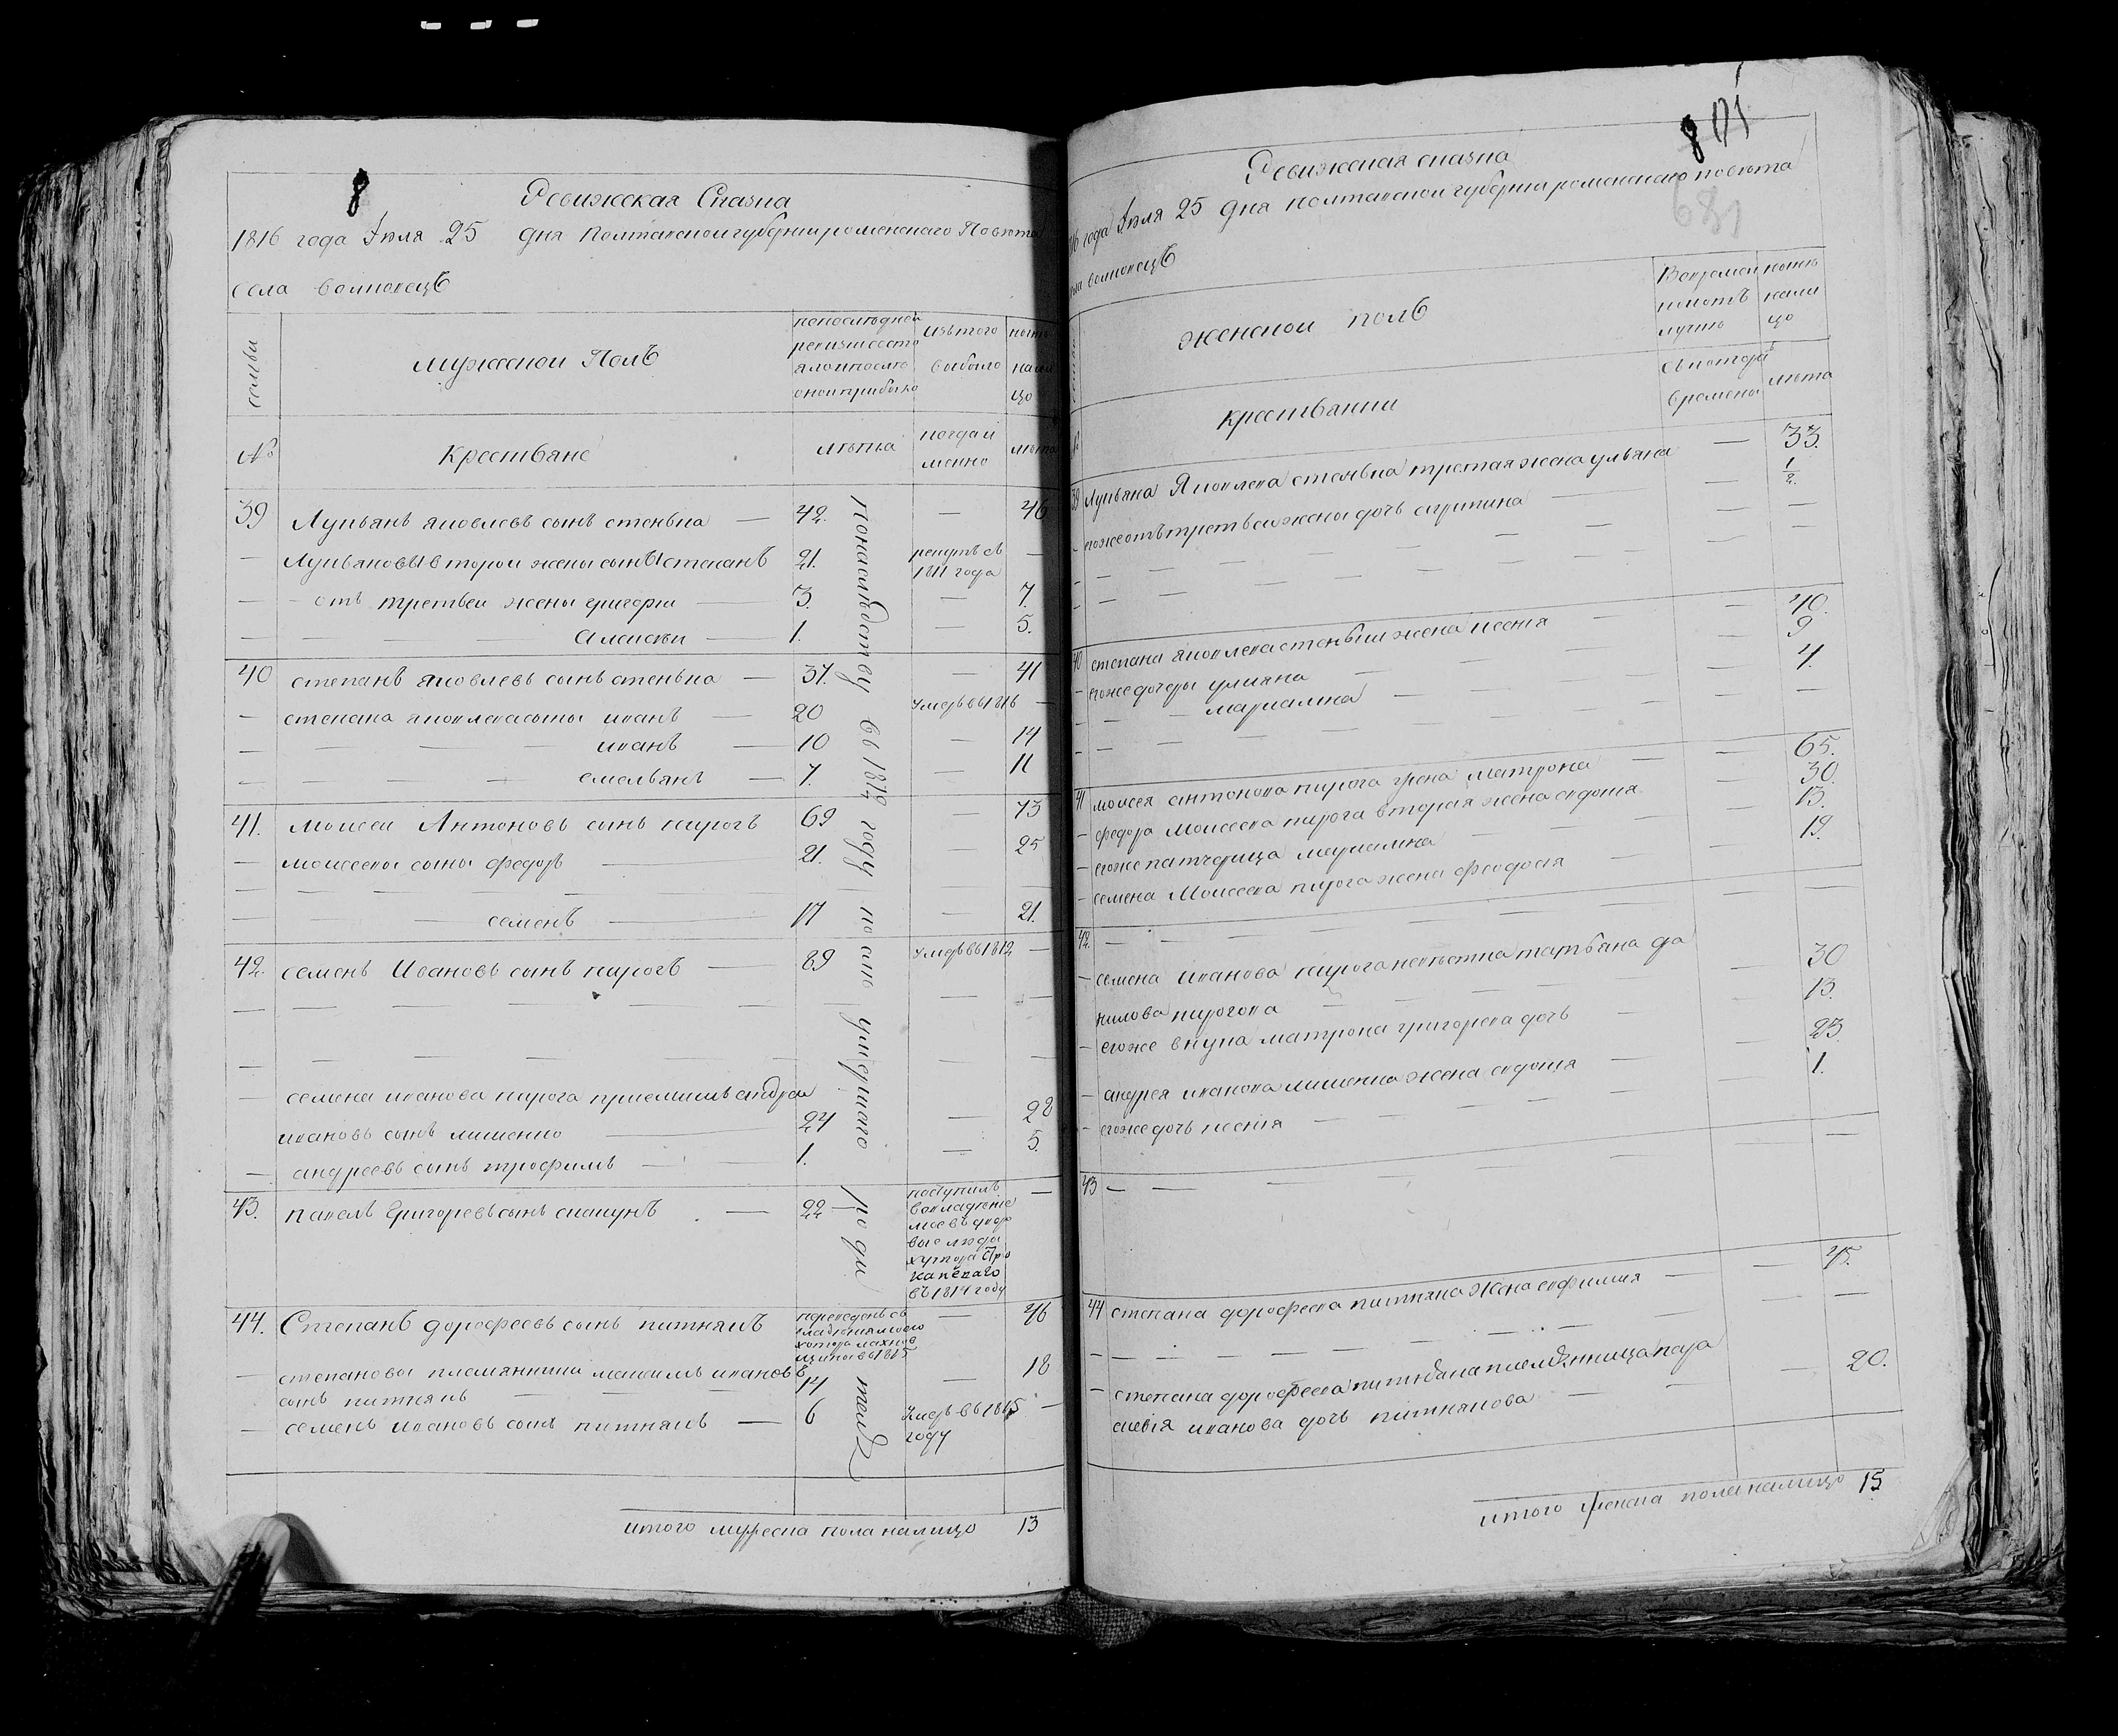 8
Ревижская Сказка
1816 года Iюля 25 дня полтавской губернии роменскаго Повѣта
села волковецъ
семьи
мужеской Полъ
попоследней
ревизии состо
яло и после
оной прибыло
Изъ того
выбыло
ныне
нали
цо
№
Крестьяне
лѣта
когда и
менно
лѣта
39 Лукьянъ яковлевъ сынъ стенька — 42. — 46
— Лукьяновы второй жены сынъ степанъ 21. рекутъ съ —
1811 года
— отъ третьей жены григорий — 3. — 7.
— Алексѣй — 1. — 5.
40 степанъ яковлевъ сынъ стенька — 37. — 41
— степана яковлева сыны иванъ — 20 умеръ въ 1816 —
— иванъ — 10 — 14
— емельянъ — 7. — 11
41. моисей Антоновъ сынъ пирогъ 69 — 73
— моисеевы сыны федоръ — 21. — 25
— семенъ — 17 — 21.
42. семенъ Ивановъ сынъ пирогъ — 89 умеръ въ 1812 —
— семена иванова пирога приемышъ андрей
ивановъ сынъ — 24 — 28
— андреевъ сынъ трофимъ — 1. — 5.
43. павелъ Григорьевъ сынъ — 22 — поступилъ —
во владѣние
мое въ дворо
вые люди
хутора
въ 1814 году
44. Степанъ дорофеевъ сынъ питнякъ переведенъ съ — 46
владѣния моего
хутора
въ 1815
— степановы племянники максимъ ивановъ 14 — 18
сынъ питнякъ
— семенъ ивановъ сынъ питнякъ — 6 Умеръ въ 1815 —
году
понаследству въ 1812 году после умершаго родителя
итого мужеска пола налицо 13
8
681
Ревижская сказка
года Iюля 25 дня полтавской губернии роменскаго повѣта
волковецъ
женской полъ
Вовремен
ной отъ
лучке
ныне
нали
цо
крестьянки
съ котораго
времены
лѣта
39 Лукьяна Яковлева стенька третая жена ульяна — 33.
— егоже отъ третьей жены дочь — 1/2.
40 степана яковлева стеньки жена ксения — 40.
— егоже дочери улияна — 9
— мариамна — 4.
41 моисея антонова пирога жена матрона — 65.
— федора Моисеева пирога вторая жена евдокия — 30.
— егоже патчерица мариамна — 13.
— семена Моисеева пирога жена феодосия — 19.
42. —
— семена иванова пирога невѣстка татьяна да
нилова пирогова — 30
— егоже внука матрона григорьева дочь — 13.
— андрея иванова жена евдокия — 23
— егоже дочь ксения — 1.
43 —
44 степана дорофеева питняка жена евфимия — 45.
— степана дорофеева питняка племянница пара
скевия иванова дочь питнякова — 20.
итого женска пола налицо 15